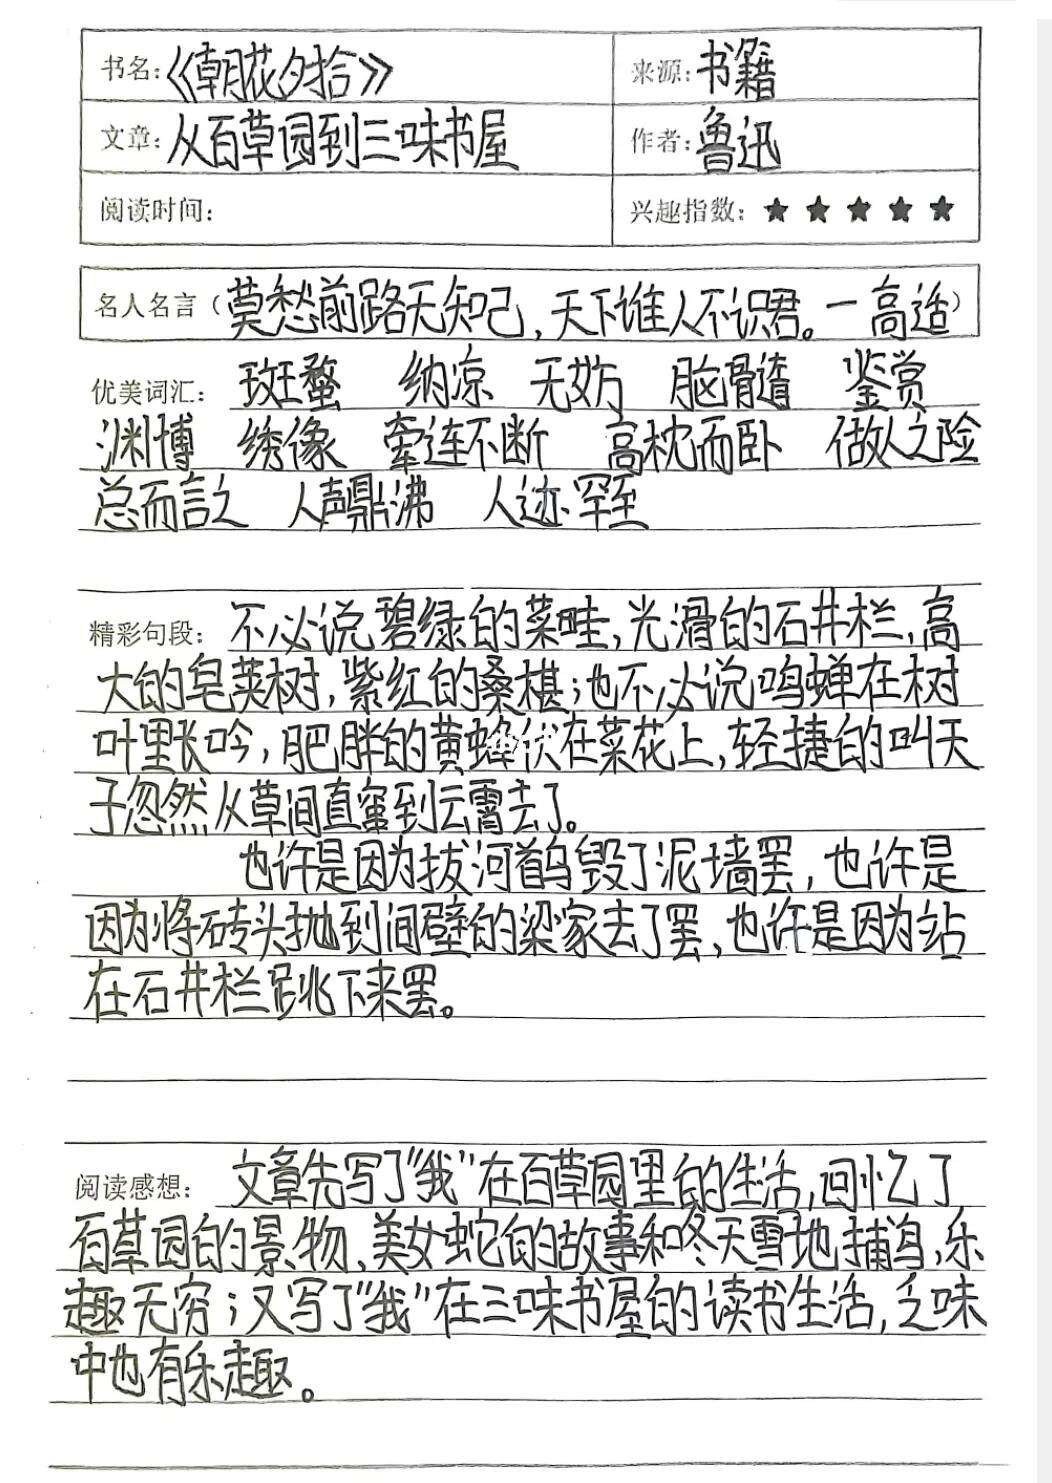 书名:《朝花夕拾》 来源:书籍
文章:从百草园到三味书屋 作者:鲁迅
阅读时间: 兴趣指数:★★★★★
名人名言(莫愁前路无知己,天下谁人不识君。—高适)
优美词汇: 斑蝥 纳凉 无妨 脑髓 鉴赏
渊博 绣像 牵连不断 高枕而卧 做人之险
总而言之 人声鼎沸 人迹罕至
精彩句段: 不必说碧绿的菜畦,光滑的石井栏,高
大的皂荚树,紫红的桑椹;也不必说鸣蝉在树
叶里长吟,肥胖的黄蜂伏在菜花上,轻捷的叫天
子忽然从草间直窜到云霄去了。
也许是因为拔河首乌毁了泥墙罢,也许是
因为将砖头抛到间壁的梁家去了罢,也许是因为站
在石井栏跳下来罢。
阅读感想: 文章先写了“我”在百草园里的生活,回忆了
百草园的景物、美女蛇的故事和冬天雪地捕鸟,乐
趣无穷;又写了“我”在三味书屋的读书生活,乏味
中也有乐趣。